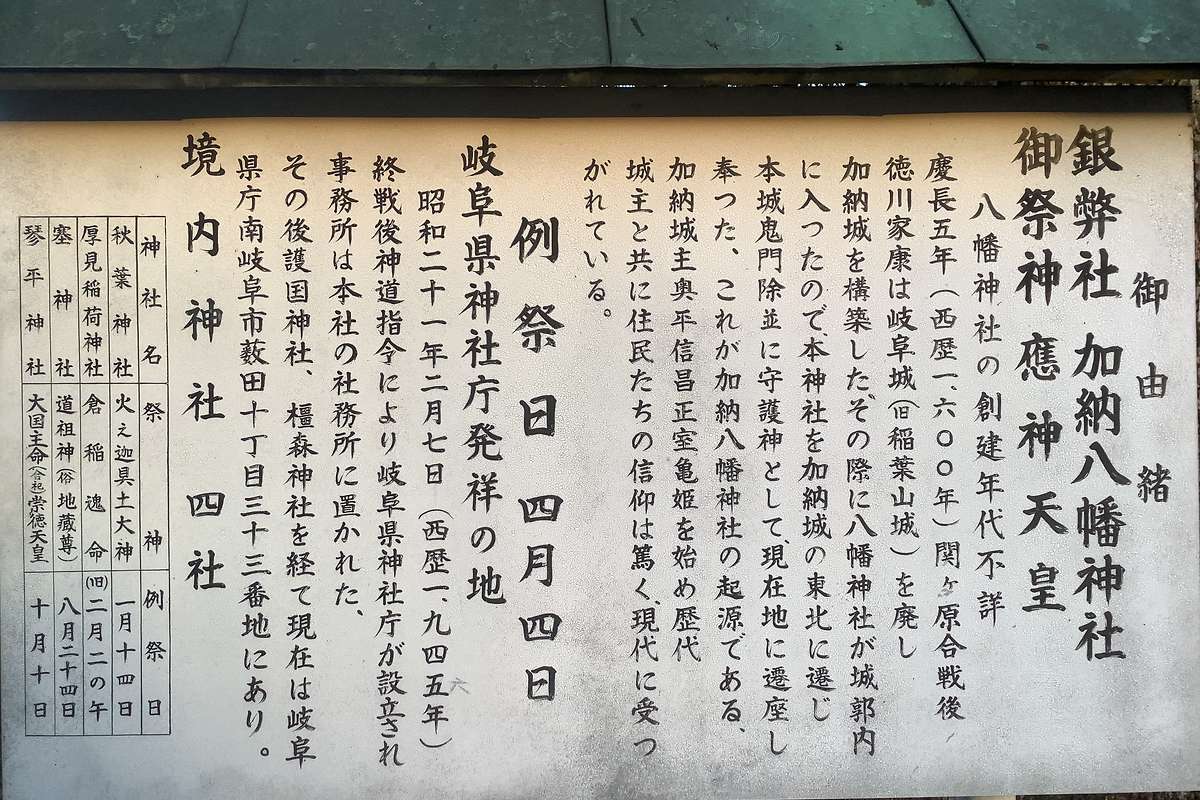 御由緒
銀弊社 加納八幡神社
御祭神 應神天皇
八幡神社の創建年代不詳
慶長五年(西歴一、六〇〇年)関ヶ原合戦後
徳川家康は岐阜城(旧稲葉山城)を廃し
加納城を構築したその際に八幡神社が城郭内
に入つたので、本神社を加納城の東北に遷じ
本城鬼門除並に守護神として、現在地に遷座し
奉つた、これが加納八幡神社の起源である、
加納城主奥平信昌正室亀姫を始め歴代
城主と共に住民たちの信仰は篤く、現代に受つ
がれている。
例祭日 四月四日
岐阜県神社庁発祥の地
昭和二十一年二月七日(西歴一、九四五年)
六
終戦後神道指令により岐阜県神社庁が設立され
事務所は本社の社務所に置かれた、
その後護国神社、橿森神社を経て現在は岐阜
県庁南岐阜市薮田十丁目三十三番地にあり。
境内神社 四社
神社名 祭神 例祭日
秋葉神社 火之迦具土大神 一月十四日
厚見稲荷神社 倉稲魂命 (旧)二月二の午
塞神社 道祖神(俗地蔵尊) 八月二十四日
琴平神社 大国主命(合祀)崇徳天皇 十月十日